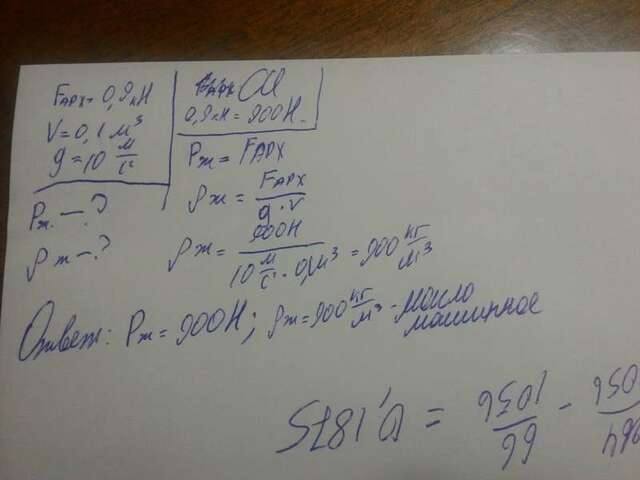 Fарх = 0,9 кН
V = 0,1 м³
g = 10 м/с²
Pж. — ?
ρж — ?
СИ
0,9 кН = 900 Н.
Pж = Fарх
ρж = Fарх / g · V
ρж = 900Н / 10 м/с² · 0,1 м³ = 900 кг/м³
Ответ: Pж = 900Н; ρж = 900 кг/м³ - масло
машинное
66/1056 = 0,1875